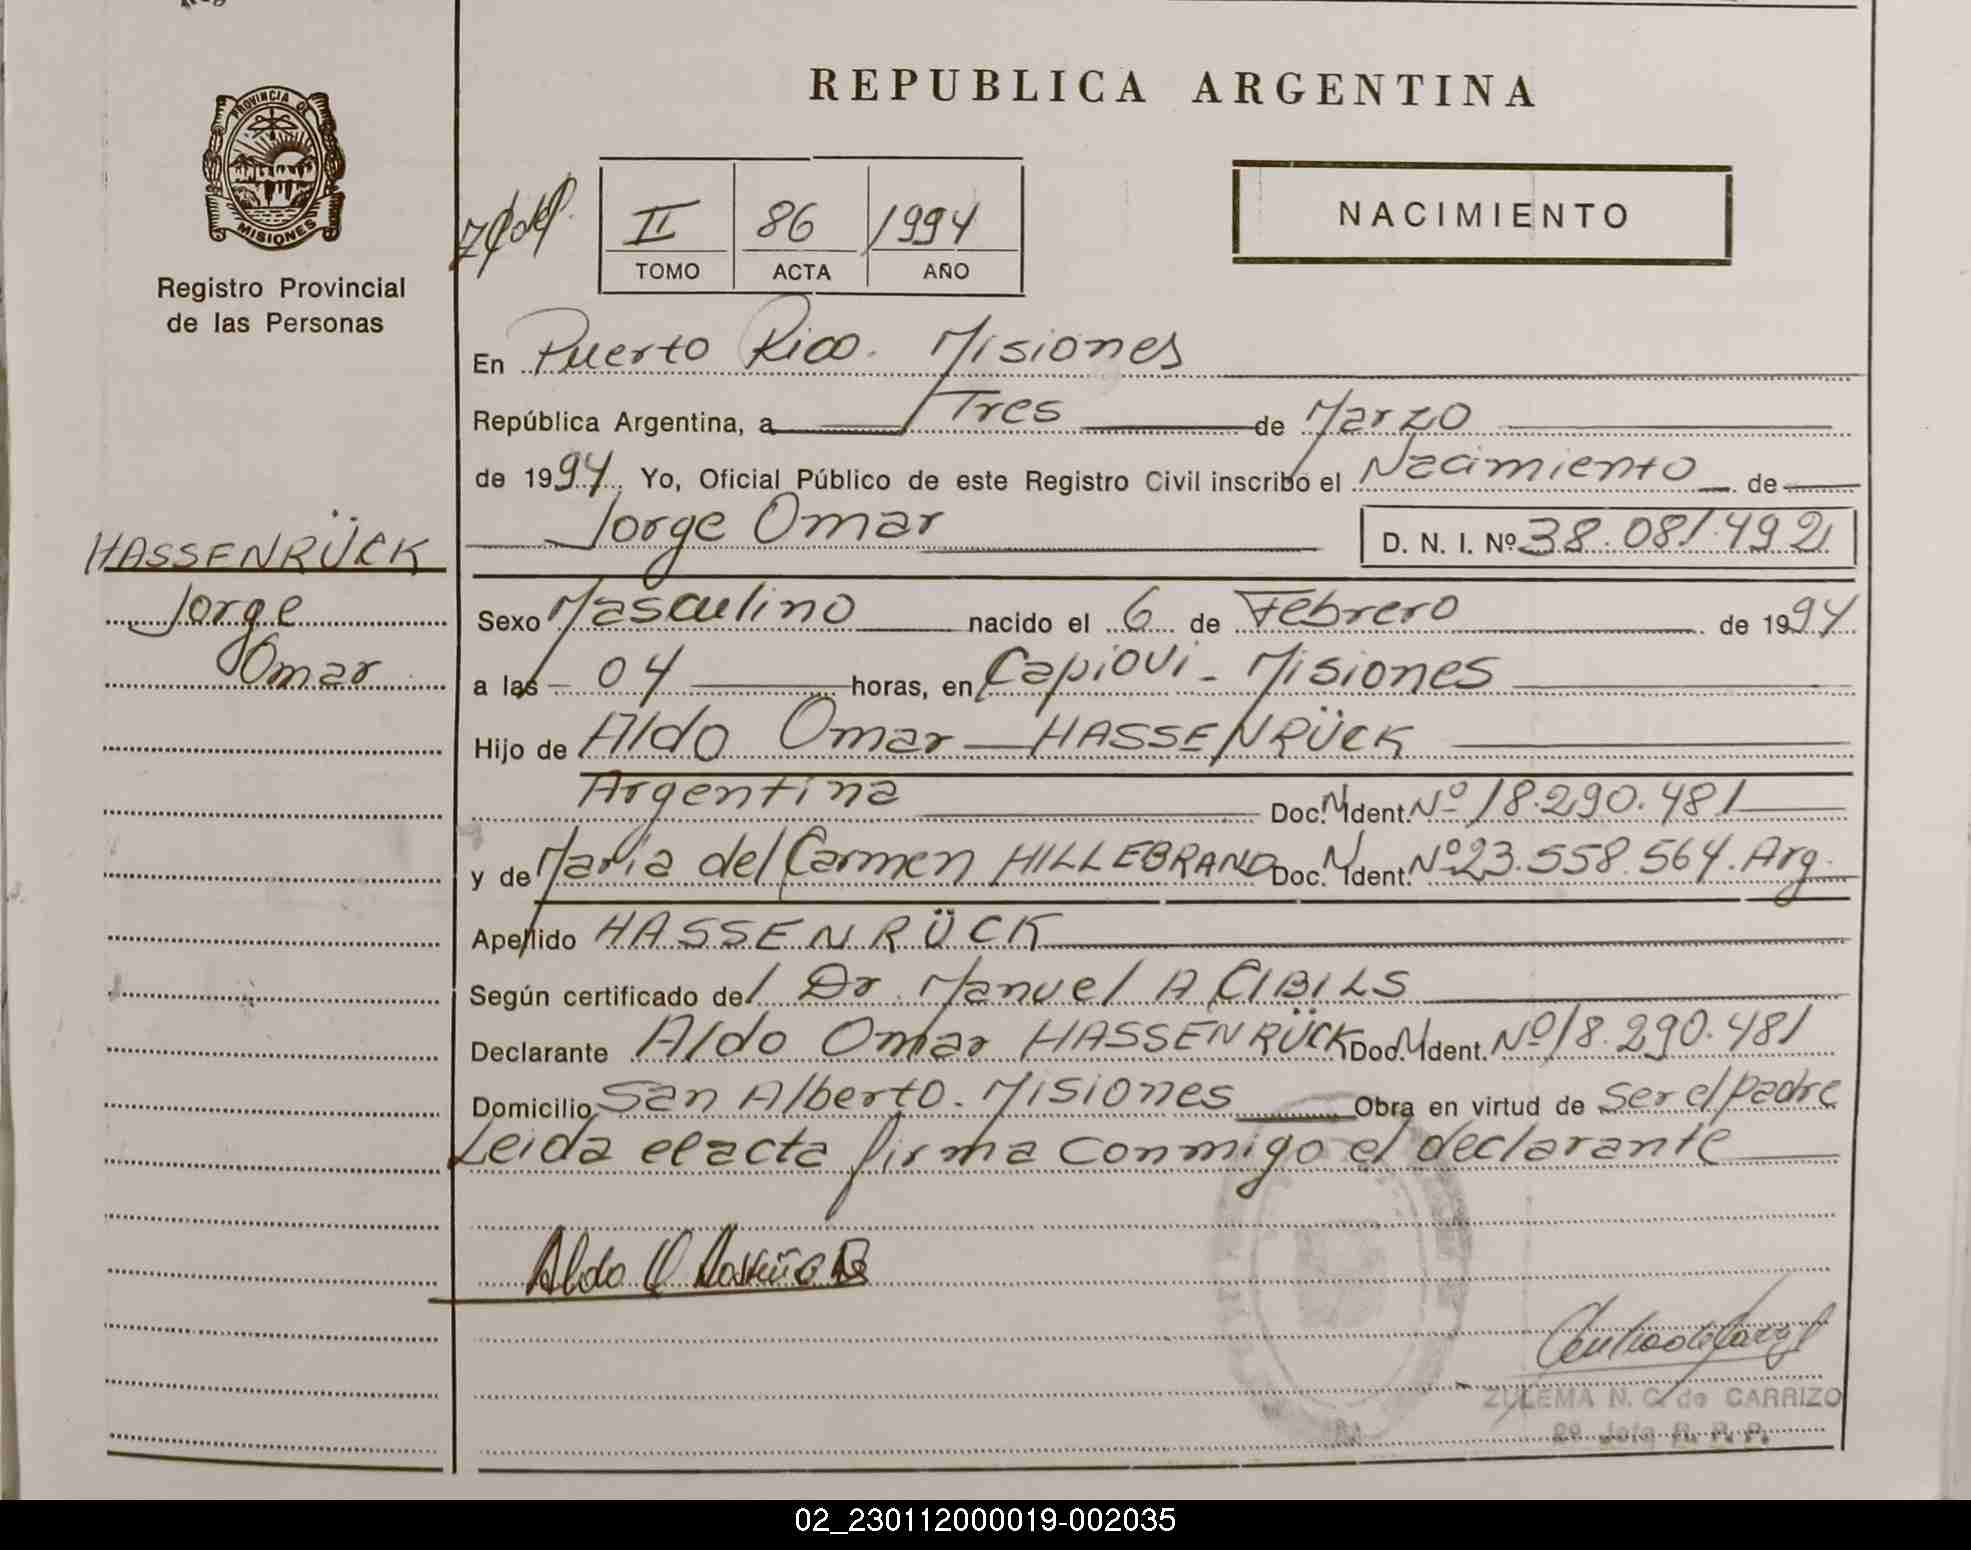 REPUBLICA ARGENTINA
PROVINCIA DE
MISIONES
Registro Provincial
de las Personas
II 86 1994
TOMO ACTA AÑO
NACIMIENTO
En Puerto Rico. Misiones
República Argentina, a Tres de Marzo
de 1994. Yo, Oficial Público de este Registro Civil inscribo el Nacimiento de
Jorge Omar D. N. I. Nº 38.081.492
HASSENRÜCK
Jorge
Omar
Sexo Masculino nacido el 6 de Febrero de 1994
a las 04 horas, en Capiovi - Misiones
Hijo de Aldo Omar HASSENRÜCK
Argentina Doc. N. Ident. Nº 18.290.481
y de Maria del Carmen HILLEBRAND Doc. N. Ident. Nº 23.558.564. Arg.
Apellido HASSENRÜCK
Según certificado del Dr. Manuel A CIBILS
Declarante Aldo Omar HASSENRÜCK Doc. N. Ident. Nº 18.290.481
Domicilio San Alberto - Misiones Obra en virtud de ser el padre
Leida el acta firma conmigo el declarante
Aldo O
ZULEMA N. C. de CARRIZO
2º Jefe R. P. P.
02_230112000019-002035